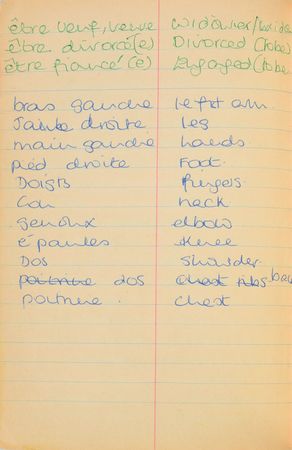 être veuf, veuve widower/
être divorcé(e) Divorced (tobe)
être fiancé(e) Engaged (tobe
bras gauche left arm
Jambe droite Leg
main gauche hands
pied droite Foot
Doigts fingers
Cou neck
genoux elbow
épaules knee
Dos shoulder
poitrine dos chest ribs
poitrine. chest